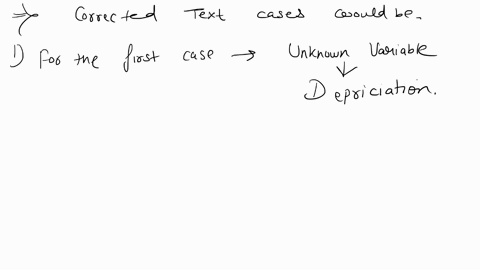 => Corrected Text cases would be.
1) For the first case → Unknown Variable
↓
Depriciation.